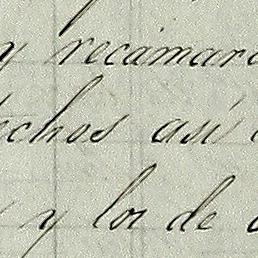 y recámara
echos así
y los de